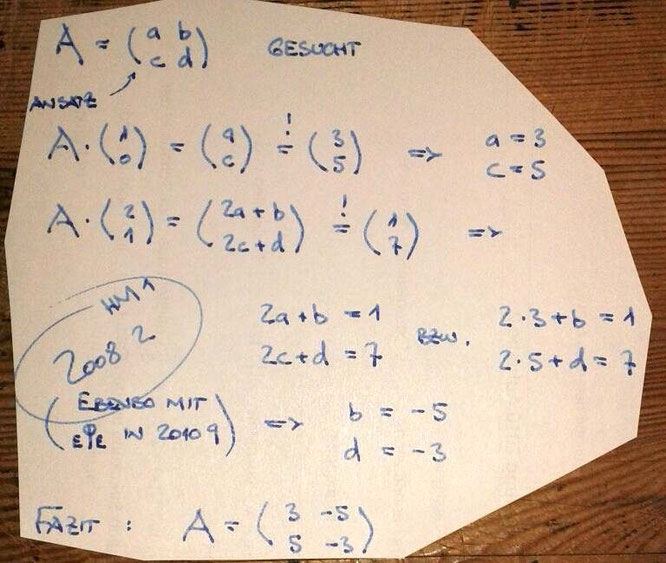 A = (a b
c d) GESUCHT
ANSATZ
A · (1
0) = (a
c) =! (3
5) => a = 3
c = 5
A · (2
1) = (2a+b
2c+d) =! (1
7) =>
HM1
2008 2
2a+b = 1
2c+d = 7
BZW.
2·3+b = 1
2·5+d = 7
(EBENSO MIT
IN 2010 9) => b = -5
d = -3
FAZIT : A = (3 -5
5 -3)